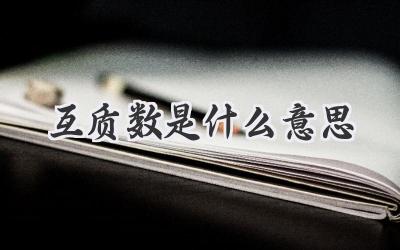 互质数是什么意思